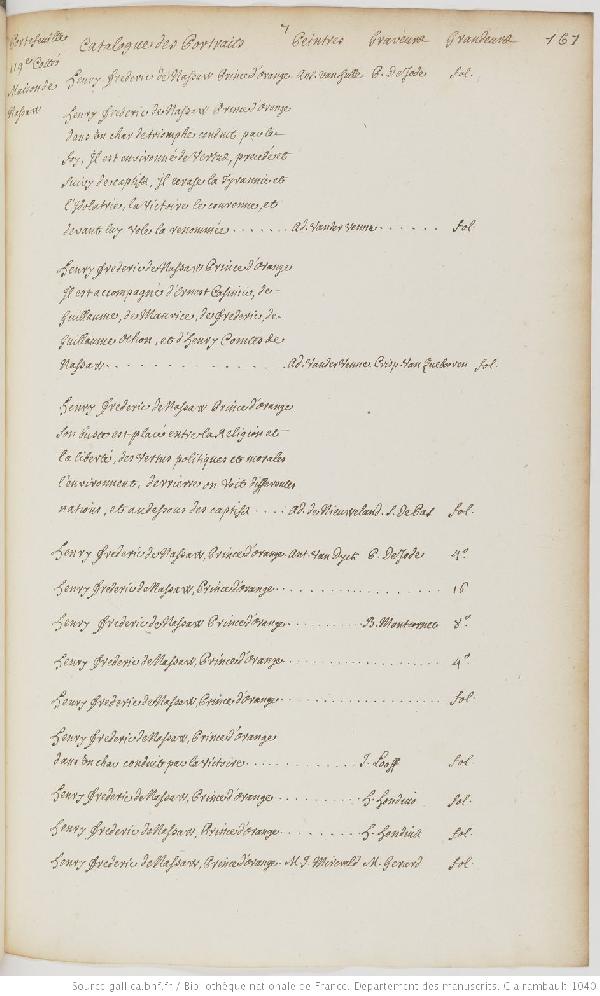 7
Portefeuille Catalogue des Portraits Peintres Graveurs Grandeurs 167
Maison de
Nassaw
Henry frederic de Nassaw Prince d'orange Ant. van hulle P. De Jode fol.
Henry frederic de Nassaw Prince d'orange
dans un char de triomphe conduit par la
foy, Il est environné de Vertus, precedé et
suivy de captifs, Il terasse la Tyrannie et
l'Idolatrie, la Victoire le couronne, et
devant luy vole la renommée . . . . . . . Ad. Vander Venne . . . . . . fol
Henry frederic de Nassaw Prince d'orange
Il est accompagné d'Ernest Casimir, de
Guillaume, de Maurice, de frederic, de
Guillaume Othon, et d'Henry Comtes de
Nassaw . . . . . . . . . . Ad. Vander Venne Crisp. Van Queboren fol.
Henry frederic de Nassaw Prince d'orange
son buste est placé entre la Religion et
la liberté, des vertus politiques et morales
l'environnent, derriere on voit differentes
nations, et au dessous des captifs . . . . Ad. de Nieuweland. S. De Bas fol.
Henry frederic de Nassaw, Prince d'orange Ant. Van Dyck P. De Jode 4°
Henry frederic de Nassaw, Prince d'orange . . . . . . . . . . . . . . 16
Henry frederic de Nassaw Prince d'orange . . . . . . . B. Montcornet 8°
Henry frederic de Nassaw, Prince d'orange . . . . . . . . . . . . . . 4°
Henry frederic de Nassaw, Prince d'orange . . . . . . . . . . . . . . fol.
Henry frederic de Nassaw, Prince d'orange
dans un char conduit par la victoire . . . . . . . . . . J. Looff fol.
Henry frederic de Nassaw, Prince d'orange . . . . . . . . H. Hondius fol.
Henry frederic de Nassaw, Prince d'orange . . . . . . . . H. Hondius fol.
Henry frederic de Nassaw, Prince d'orange M. J. Mirevold M. Gerard fol.
Source gallica.bnf.fr / Bibliothèque nationale de France. Département des manuscrits. Clairambault 1040